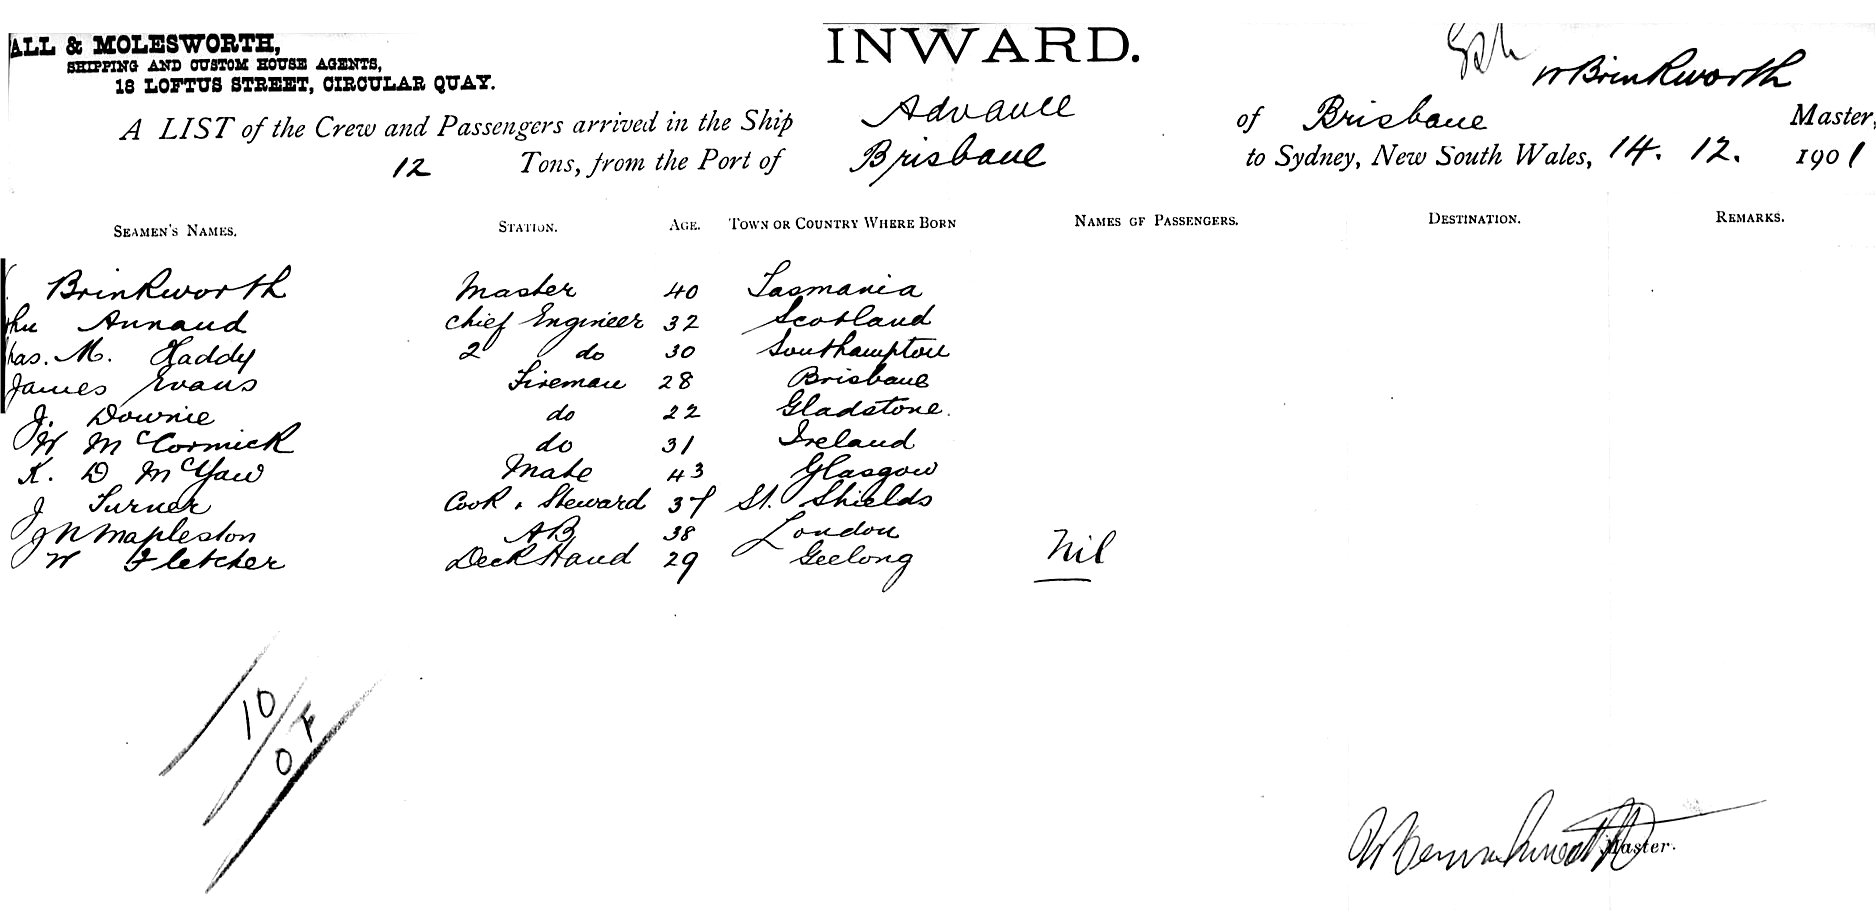 ALL & MOLESWORTH,
SHIPPING AND CUSTOM HOUSE AGENTS,
18 LOFTUS STREET, CIRCULAR QUAY.
INWARD.
A LIST of the Crew and Passengers arrived in the Ship Advance of Brisbane W Brinkworth Master,
12 Tons, from the Port of Brisbane to Sydney, New South Wales, 14. 12. 1901
SEAMEN'S NAMES. STATION. AGE. TOWN OR COUNTRY WHERE BORN NAMES OF PASSENGERS. DESTINATION. REMARKS.
Brinkworth Master 40 Tasmania
Annand Chief Engineer 32 Scotland
has. M. Haddy 2 do 30 Southampton
James Evans Fireman 28 Brisbane
J. Downie do 22 Gladstone.
W McCormick do 31 Ireland
K. D McYaw Mate 43 Glasgow
J Turner Cook & Steward 37 St. Shields
J N Mapleston AB 38 London
W Fletcher Deck Hand 29 Geelong Nil
10
Master.